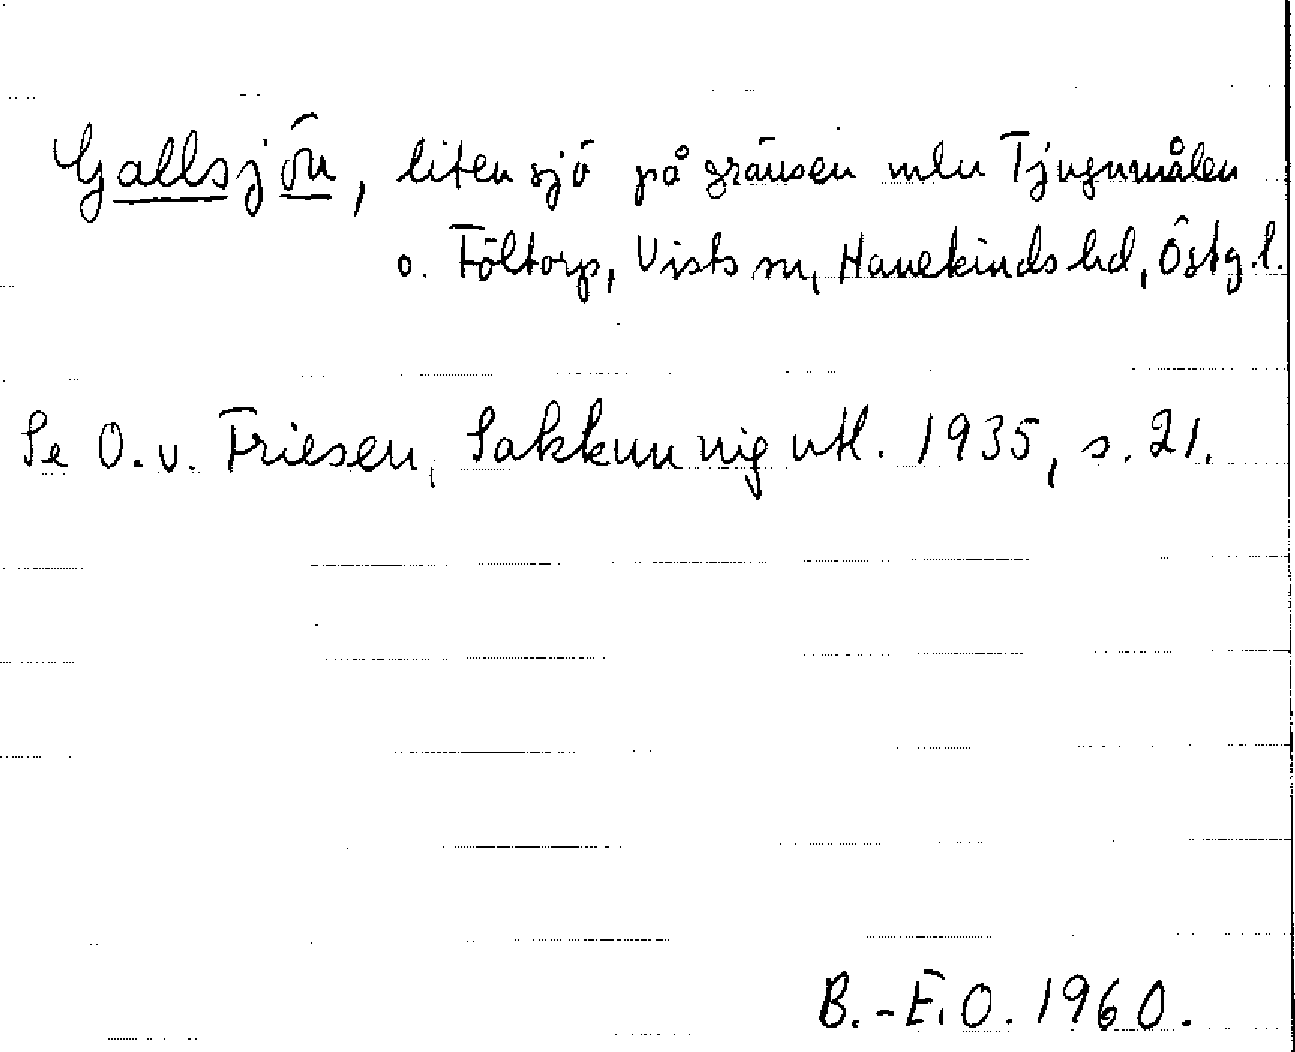 Gallsjön, liten sjö på gränsen mln Tjugumålen
o. Följtorp, Vists sn, Hanekinds hd, Östg. l.
Se O. v. Friesen, Sakkunnig utl. 1935, s. 21.
B.-E. O. 1960.